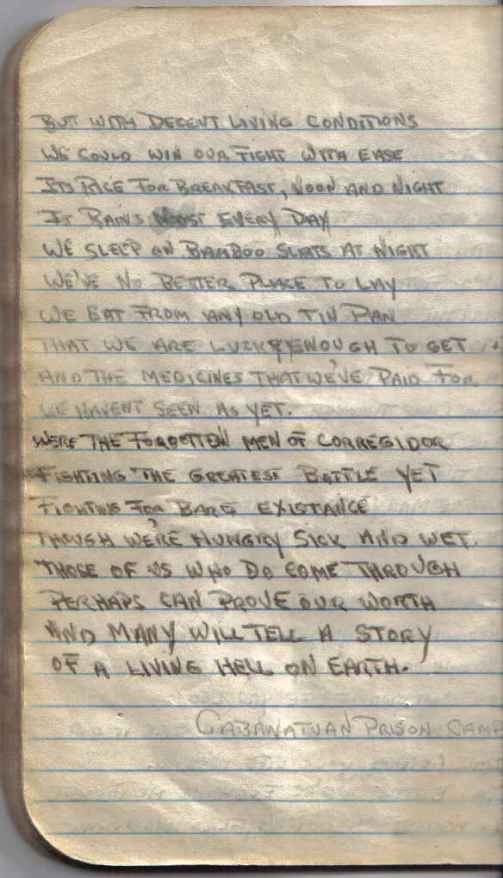 BUT WITH DECENT LIVING CONDITIONS
WE COULD WIN OUR FIGHT WITH EASE
ITS RICE FOR BREAKFAST, NOON AND NIGHT
IT RAINS MOST EVERY DAY
WE SLEEP ON BAMBOO SLATS AT NIGHT
WE'VE NO BETTER PLACE TO LAY
WE EAT FROM ANY OLD TIN PAN
THAT WE ARE LUCKY ENOUGH TO GET
AND THE MEDICINES THAT WE'VE PAID FOR
WE HAVENT SEEN AS YET.
WERE THE FORGOTTEN MEN OF CORREGIDOR
FIGHTING THE GREATEST BATTLE YET
FIGHTING FOR BARE EXISTANCE
THOUGH WE'RE HUNGRY SICK AND WET.
THOSE OF US WHO DO COME THROUGH
PERHAPS CAN PROVE OUR WORTH
AND MANY WILL TELL A STORY
OF A LIVING HELL ON EARTH.
CABANATUAN PRISON CAMP